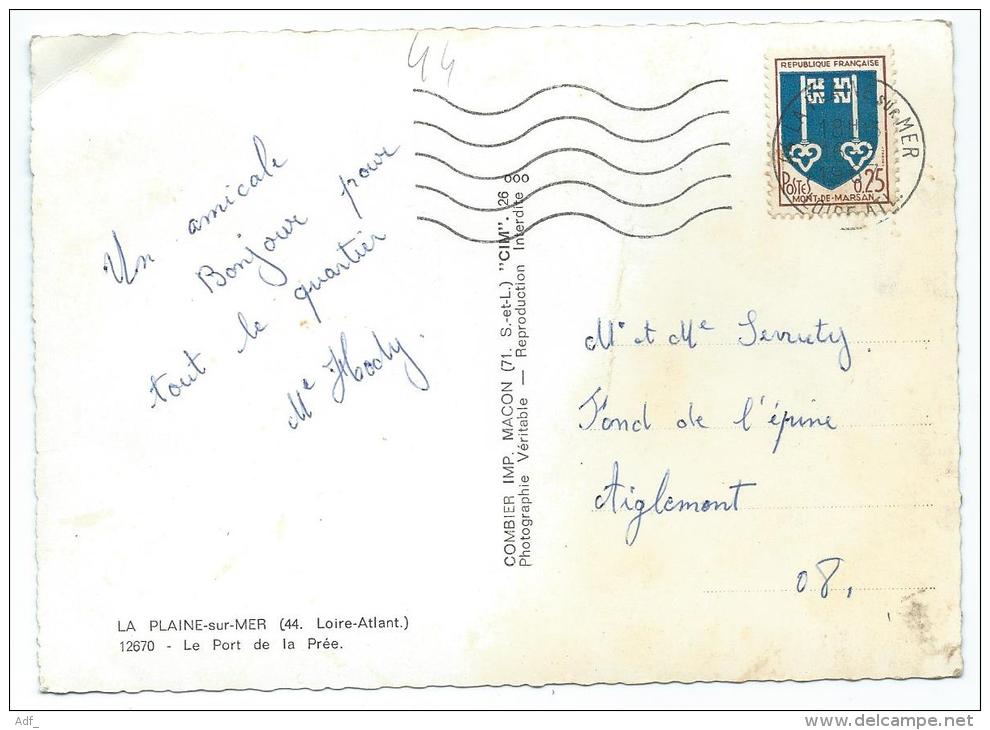 44
Un amicale
Bonjour pour
tout le quartier
Me Hody.
LA PLAINE-sur-MER (44. Loire-Atlant.)
12670 - Le Port de la Prée.
COMBIER IMP. MACON (71. S.-et-L.) "CIM". 26 ooo
Photographie Véritable — Reproduction Interdite
REPUBLIQUE FRANÇAISE
POSTES 0,25
MONT-DE-MARSAN
sur MER
Mr et Me Serruty.
Fond de l'épine
Aiglemont
08,
Adf_
www.delcampe.net